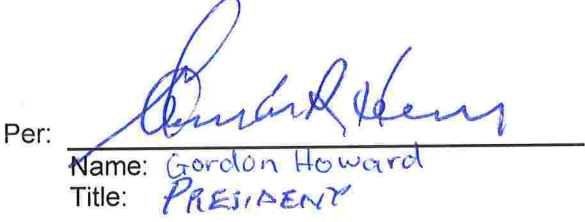 Per:
Name: Gordon Howard
Title: PRESIDENT